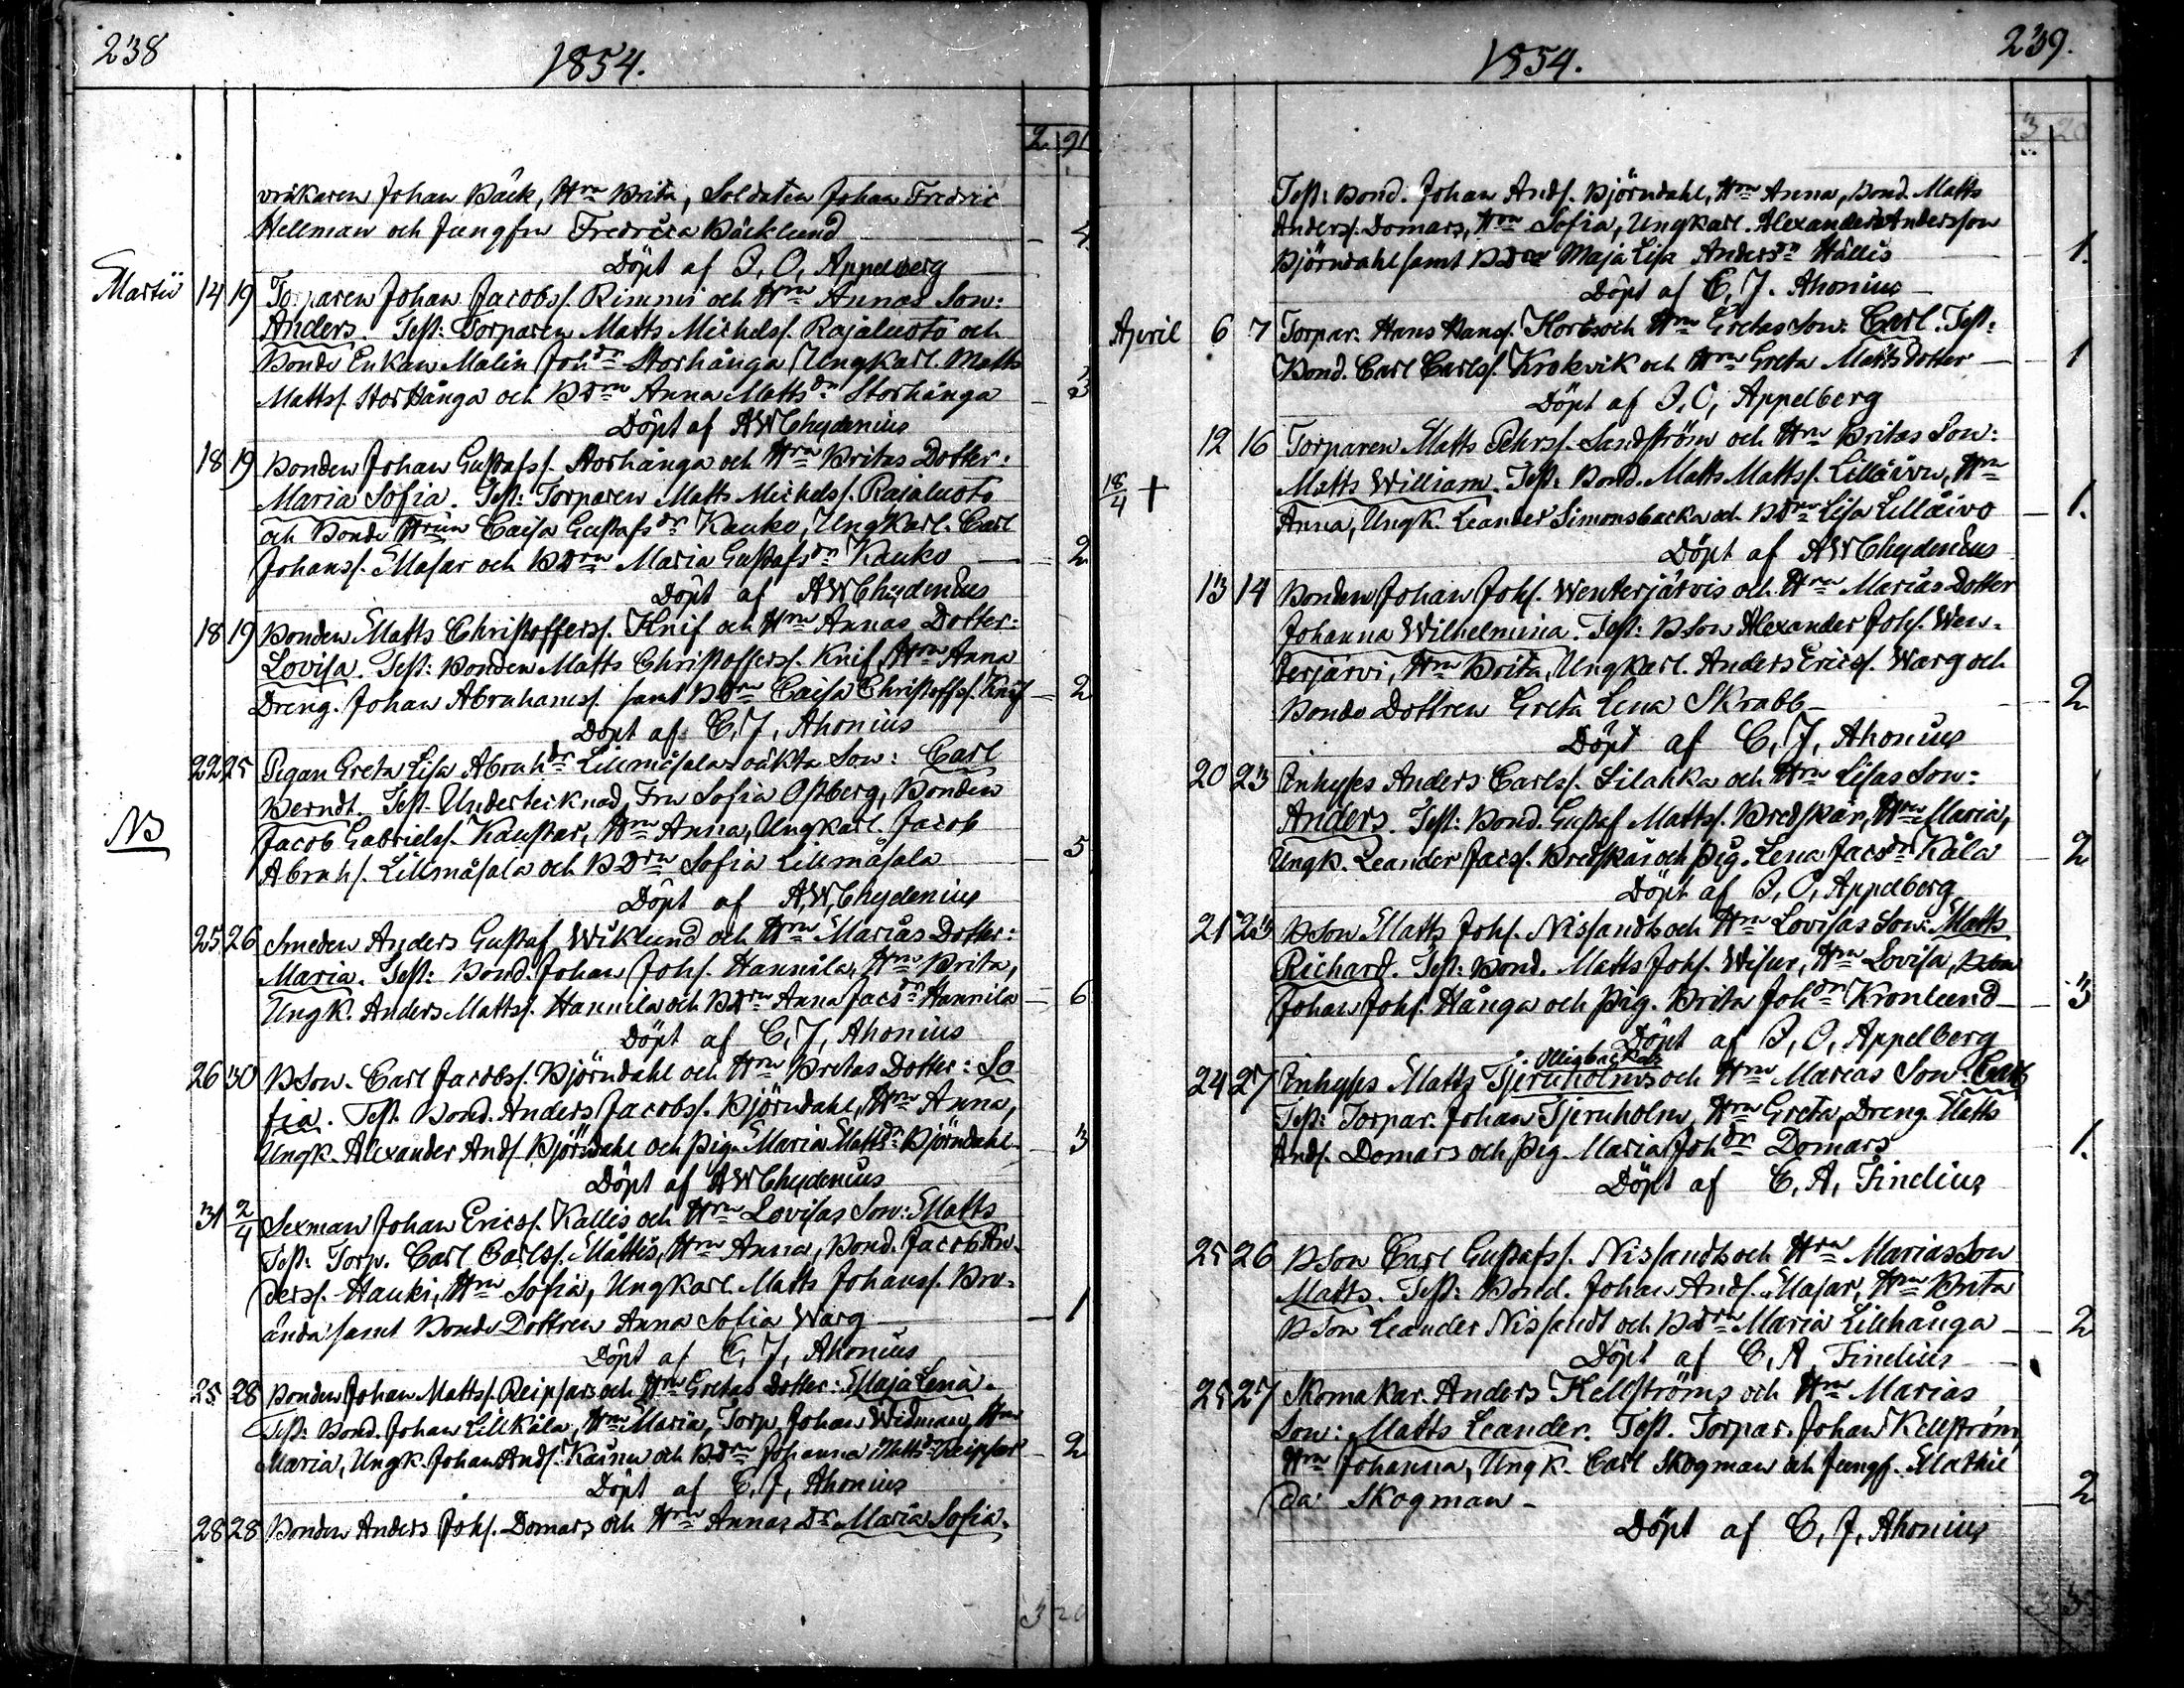 238
1854.
2 91
vräkaren Johan Bäck, Hru Brita, Soldaten Johan Fredric
Hellman och Jungfru Fredrica Bäcklund 4
Döpt af P. O. Appelberg
Martii 14 19 Torparen Johan Jacobss. Rimmi och Hru Annas Son:
Anders. Test: Torparen Matts Michelss. Rajaluoto och
Bonde Enkan Malin Johdr Storhånga, Ungkarl. Matts
Mattss. Storhånga och BDrn Anna Mattsdr Storhånga 3
Döpt af AWChydenius
18 19 Bonden Johan Gustafss. Storhånga och Hru Britas Dotter:
Maria Sofia. Test: Torparen Matts Michelss. Rajaluoto
och Bonde Hrun Caisa Gustafsdr Kauko, Ungkarl. Carl
Johanss. Masar och BDrn Maria Gustafsdr Kauko 2
Döpt af AWChydenius
18 19 Bonden Matts Christofferss. Knif och Hru Annas Dotter:
Lovisa. Test: Bonden Matts Christofferss. Knif, Hru Anna
Dreng. Johan Abrahamss. samt BDrn Caisa Christoffss. Knif 2
Döpt af C. J. Ahonius
22 25 Pigan Greta Lisa Abrahdr Lillmåsalas oäkta Son: Carl
Berndt. Test. Undertecknad, Fru Sofia Ostberg, Bonden
NB Jacob Gabrielss. Kaustar, Hru Anna, Ungkarl. Jacob
Abrahs. Lillmåsala och BDrn Sofia Lillmåsala 5
Döpt af A,W,Chydenius
25 26 Smeden Anders Gustaf Wiklund och Hru Marias Dotter:
Maria. Test: Bond. Johan Johs. Hannila, Hru Brita,
Ungk. Anders Mattss. Hannila och BDrn Anna Jacsdr Hannila 6
Döpt af C. J. Ahonius
26 30 BSon. Carl Jacobss. Björndahl och Hru Britas Dotter: So
fia. Test. Bond. Anders Jacobss. Björndahl, Hru Anna,
Ungk. Alexander Ands. Björndahl och Pig. Maria Mattsdr Björndahl 3
Döpt af AWChydenius
31 2/4 Sexman Johan Ericss. Kallis och Hru Lovisas Son: Matts
Test: Torp. Carl Carlss. Måttis, Hru Anna, Bond. Jacob An-
derss. Hauki, Hru Sofia, Ungkarl. Matts Johanss. Bru-
ånda samt Bonde Dottren Anna Sofia Warg 1
Döpt af C. J. Ahonius
25 28 Bonden Johan Mattss. Reipsars och Hru Gretas Dotter: Maja Lena.
Test: Bond. Johan Lillkåla, Hru Maria, Torp. Johan Widman, Hru
Maria, Ungk. Johan Ands. Kainu och BDrn Johanna Mattsdr Reipsar 2
Döpt af C. J. Ahonius
28 28 Bonden Anders Johs. Domars och Hru Annas Dr Maria Sofia.
3 20
239.
1854.
3 20
Test: Bond. Johan Ands. Björndahl, Hru Anna, Bond. Matts
Anderss. Domars, Hru Sofia, Ungkarl. Alexander Andersson
Björndahl samt BDrn Maja Lisa Andersdr Wallis 1.
Döpt af C. J. Ahonius
April 6 7 Torpar. Hans Hanss. Korbs och Hru Gretas Son: Carl. Test:
Bond. Carl Carlss. Krokvik och Hru Greta Matts dotter 1
Döpt af P. O. Appelberg
12 16 Torparen Matts Pehrss. Sandström och Hru Britas Son:
18/4 + Matts William. Test: Bond. Matts Mattss. Lillåivo, Hru
Anna, Ungk. Leander Simonsbacka och BDrn Lisa Lillåivo 1.
Döpt af AWChydenius
13 14 Bonden Johan Johs. Wenterjärvis och Hru Marias Dotter
Johanna Wilhelmina. Test: BSon Alexander Johs. Wen-
terjärvi, Hru Brita, Ungkarl. Anders Ericss. Warg och
Bonde Dottren Greta Lena Skrabb 2
Döpt af C. J. Ahonius
20 23 Inhyses Anders Carlss. Lilahka och Hru Lisas Son:
Anders. Test: Bond. Gustaf Mattss. Bredskär, Hru Maria,
Ungk. Leander Jacss. Bredskär och Pig. Lena Jacsdr Kåla 2
Döpt af P. O. Appelberg
21 23 BSon Matts Johs. Nissandts och Hru Lovisas Son: Matts
Richard. Test: Bond. Matts Johs. Wisur, Hru Lovisa, BSon
Johan Johs. Hånga och Pig. Brita Johdr Kronlund 3
Döpt af P. O. Appelberg
24 27 Inhyses Matts Tjernholms och Hru Marias Son: Carl
Test: Torpar. Johan Tjernholm, Hru Greta, Dreng. Matts
Ands. Domars och Pig. Maria Johdr Domars 1.
Döpt af C. A. Finelius
25 26 BSon Carl Gustafss. Nissandts och Hru Marias Son
Matts. Test: Bond. Johan Ands. Masar, Hru Brita
BSon Leander Nissandt och BDrn Maria Lillhånga 2
Döpt af C. A. Finelius
25 27 Skomakar. Anders Kellströms och Hru Marias
Son: Matts Leander. Test. Torpar. Johan Kellström,
Hru Johanna, Ungk. Carl Skogman och Jungf. Mathil
da Skogman 2
Döpt af C. J. Ahonius